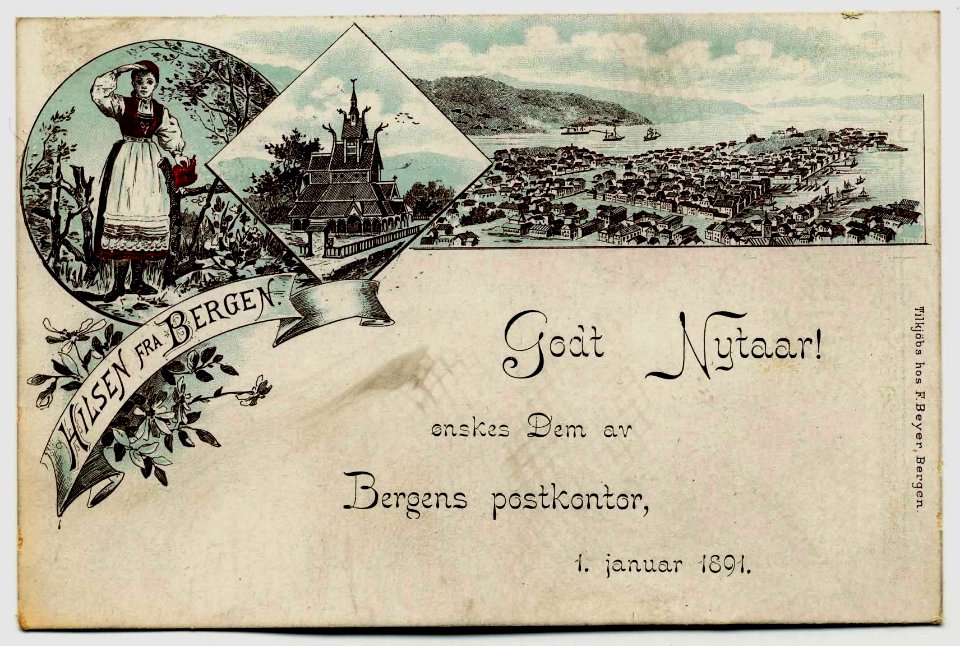 HILSEN FRA BERGEN.
Godt Nytaar!
ønskes Dem av
Bergens postkontor,
1. januar 1891.
Tilkjöbs hos F. Beyer, Bergen.